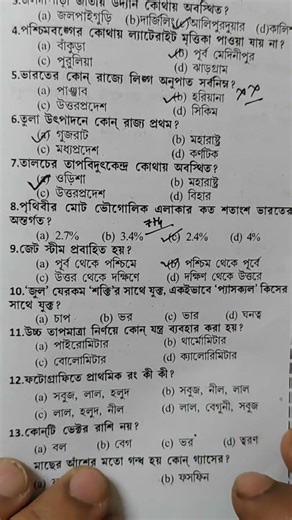 জলদাপাড়া জাতীয় উদ্যান কোথায় অবস্থিত?
(a) জলপাইগুড়ি (b)দার্জিলিং (c)আলিপুরদুয়ার (d)কালি
4.পশ্চিমবঙ্গের কোথায় ল্যাটেরাইট মৃত্তিকা পাওয়া যায় না?
(a) বাঁকুড়া (b) পূর্ব মেদিনীপুর
(c) পুরুলিয়া (d) ঝাড়গ্রাম
5.ভারতের কোন্ রাজ্যে লিঙ্গ অনুপাত সর্বনিম্ন?
(a) পাঞ্জাব (b) হরিয়ানা
(c) উত্তরপ্রদেশ (d) সিকিম
6.তুলা উৎপাদনে কোন্ রাজ্য প্রথম?
(a) গুজরাট (b) মহারাষ্ট্র
(c) মধ্যপ্রদেশ (d) কর্ণাটক
7.তালচের তাপবিদ্যুৎকেন্দ্র কোথায় অবস্থিত?
(a) ওড়িশা (b) মহারাষ্ট্র
(c) উত্তরপ্রদেশ (d) বিহার
8.পৃথিবীর মোট ভৌগোলিক এলাকার কত শতাংশ ভারতের
অন্তর্গত?
(a) 2.7% (b) 3.4% (c) 2.4% (d) 4%
9.জেট স্টীম প্রবাহিত হয়?
(a) পূর্ব থেকে পশ্চিমে (b) পশ্চিম থেকে পূর্বে
(c) উত্তর থেকে দক্ষিণে (d) দক্ষিণ থেকে উত্তরে
10.'জুল' যেরকম 'শক্তি'র সাথে যুক্ত, একইভাবে 'প্যাসকাল' কিসের
সাথে যুক্ত?
(a) চাপ (b) ভর (c) ভার (d) ঘনত্ব
11.উচ্চ তাপমাত্রা নির্ণয়ে কোন্ যন্ত্র ব্যবহার করা হয়?
(a) পাইরোমিটার (b) থার্মোমিটার
(c) বোলোমিটার (d) ক্যালোরিমিটার
12.ফটোগ্রাফিতে প্রাথমিক রং কী কী?
(a) সবুজ, লাল, হলুদ (b) সবুজ, নীল, লাল
(c) লাল, হলুদ, নীল (d) লাল, বেগুনী, সবুজ
13.কোন্‌টি ভেক্টর রাশি নয়?
(a) বল (b) বেগ (c) ভর (d) ত্বরণ
মাছের আঁশের মতো গন্ধ হয় কোন্ গ্যাসের?
(a) (b) ফসফিন